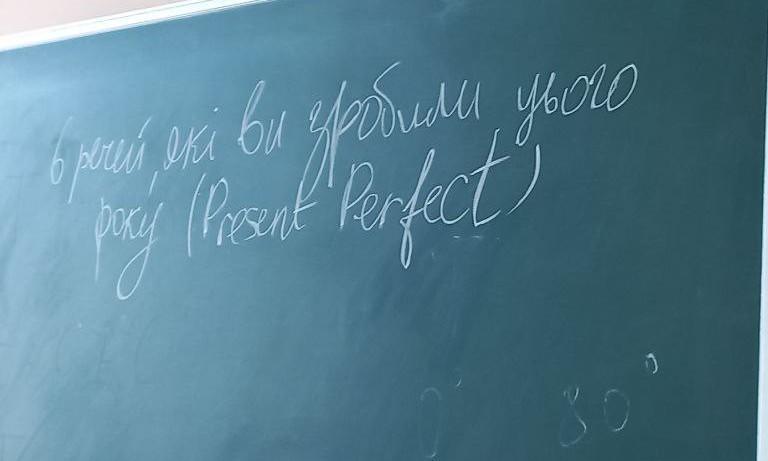 6 речей, які ви зробили цього
року (Present Perfect)
0° 80°